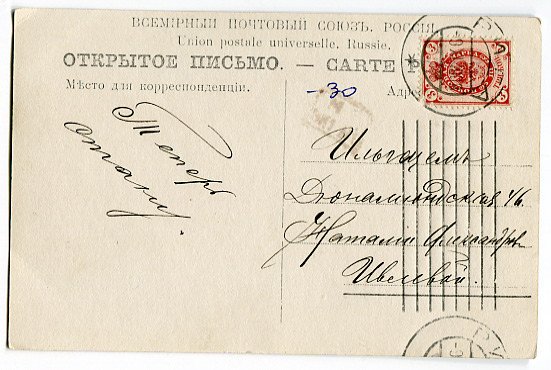 ВСЕМІРНЫЙ ПОЧТОВЫЙ СОЮЗЪ. РОССІЯ.
Union postale universelle. Russie.
ОТКРЫТОЕ ПИСЬМО. — CARTE P
Мѣсто для корреспонденціи.
Адре
-30
Теперь
стану.
Ильгацемъ
46.
Наталіи Александр
Ивелевой.
3
3
РИ
РИ